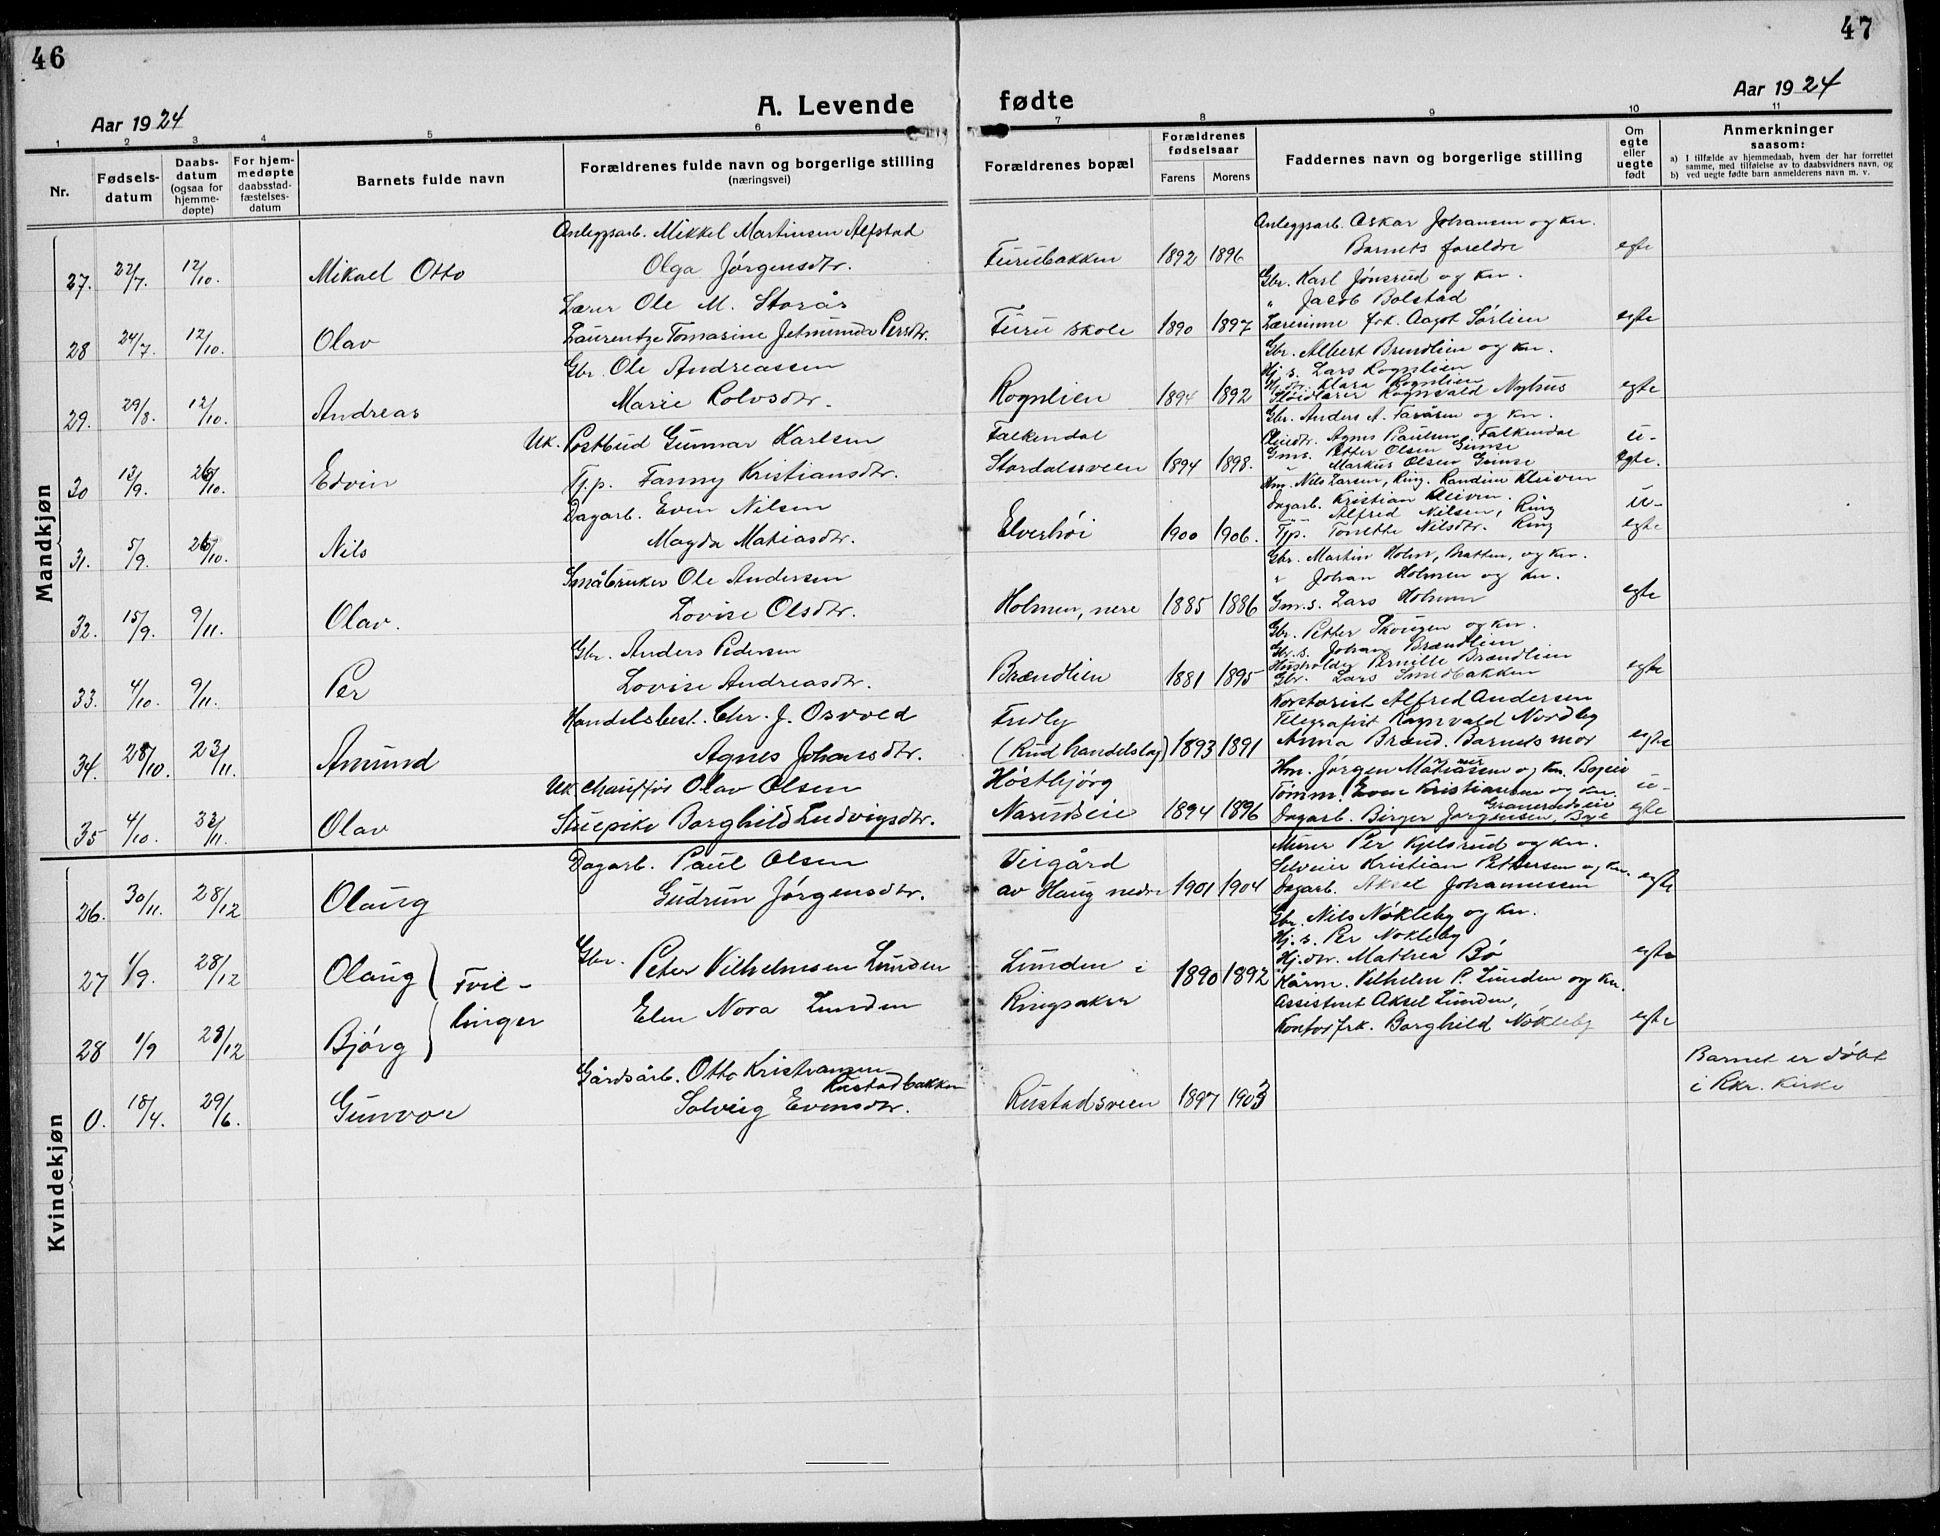 46
47
Aar 1924
A. Levende fødte
Aar 1924
1 2 3 4 5 6 7 8 9 10 11
Nr.
Fødsels-
datum
Daabs-
datum
(ogsaa for
hjemme-
døpte)
For hjem-
medøpte
daabsstad-
fæstelses-
datum
Barnets fulde navn
Forældrenes fulde navn og borgerlige stilling
(næringsvei)
Forældrenes bopæl
Forældrenes
fødselsaar
Farens Morens
Faddernes navn og borgerlige stilling
Om
egte
eller
uegte
født
Anmerkninger
saasom:
a) I tilfælde av hjemmedaab, hvem der har forrettet
samme, med tilføielse av to daabsvidners navn, og
b) ved uegte fødte barn anmelderens navn m. v.
Mandkjøn
27. 22/7. 12/10. Mikael Otto
Anleggsarb. Mikkel Martinsen Alfstad
Olga Jørgensdtr.
Furubakken 1892 1896
Anleggsarb. Oskar Johansen og kn.
Barnets foreldre
Gbr. Karl Jønsrud og kn.
egte
28 24/7. 12/10. Olav
Lærer Ole M. Storås
Laurentze Tomasine Jetmunda Persdtr.
Furu skole 1890 1897
" Jacob Bolstad
Lærerinne frk. Aagot Sørlien
Gbr. Albert Brendlien og kn.
egte
29. 29/8. 12/10. Andreas
Gbr. Ole Andreassen
Marie Rolvsdtr.
Rognlien 1894 1892
Hj.s. Lars Rognlien
Hj.dtr. Klara Rognlien
Sløidlærer Rognvald Nyhus
Gbr. Anders A. Faråsen og kn.
egte
30 13/9. 26/10. Edvin
Uk. Postbud Gunnar Karlsen
Tj.p. Fanny Kristiansdtr.
Falkendal
Stordalssveen 1894 1898.
Pleiedtr. Agnes Paulsen, Falkendal
Gms. Petter Olsen Gimse
" Markus Olsen Gimse
u-
egte.
31. 5/9. 26/10. Nils
Dagarb. Even Nilsen
Magda Matiasdtr.
Elverhøi 1900 1906.
Hm. Nils Larsen, Ring. Randine Kleiven
Dagarb. Kristian Kleiven.
" Alfred Nilsen, Ring
Tjp. Tonette Nilsdtr. Ring
u-
egte
32. 15/9. 9/11. Olav.
Småbruker Ole Andersen
Lovise Olsdtr.
Holmen, nere 1885 1886
Gbr. Martin Holm, Bratten, og kn.
" Johan Holmen og kn.
Gm.s. Lars Holmen
egte
33. 4/10. 9/11. Per
Gbr. Anders Pedersen
Lovise Andreasdtr.
Brændlien 1881 1895
Gbr. Petter Skougen og kn.
Gbr.s. Johan Brændlien
Husholder Pernille Brændlien
Gbr. Lars Smedbakken
egte
34. 28/10. 23/11. Amund
Handelsbest. Chr. J. Osvold
Agnes Johansdtr.
Fredly
(Rud handelslag) 1893 1891
Kontorist Alfred Andersen
Telegrafist Ragnvald Nordby
Anna Brænd. Barnets mor
egte
35 4/10. 23/11. Olav
Uk. Chauffør Olav Olsen
Stuepike Borghild Ludvigsdtr.
Høstbjørg
Narudseie 1894 1896
Hm. Jørgen Matiassen og kn. Bojeie
Tømm. Even Kristiansen og kn.
Granerudseie
Dagarb. Birger Jørgensen, Bye
u-
egte
Kvindekjøn
26. 30/11. 28/12 Olaug
Dagarb. Paul Olsen
Gudrun Jørgensdtr.
Veigård
av Haug nedre 1901 1904
Murer Per Kjelsrud og kn.
Selveier Kristian Pettersen og kn.
Dagarb. Aksel Johannessen
egte
27 1/9. 28/12 Olaug
Tvil-
linger
Gbr. Peter Vilhelmsen Lunden
Elen Nora Lunden
Lunden i
Ringsaker 1890 1892
Gbr. Nils Nøkleby og kn.
Hj.s. Per Nøkleby
Hj.dtr. Mathea Bø
egte
28 1/9 28/12 Bjørg
Kårm. Vilhelm P. Lunden og kn.
Assistent Aksel Lunden,
Kontorfrk. Borghild Nøkleby
egte
0. 18/4. 29/6. Gunvor
Gårdsarb. Otto Kristiansen
Rustadbakken
Solveig Evensdtr.
Rustadsveen 1897 1903
Barnet er døbt
i Rkr. kirke